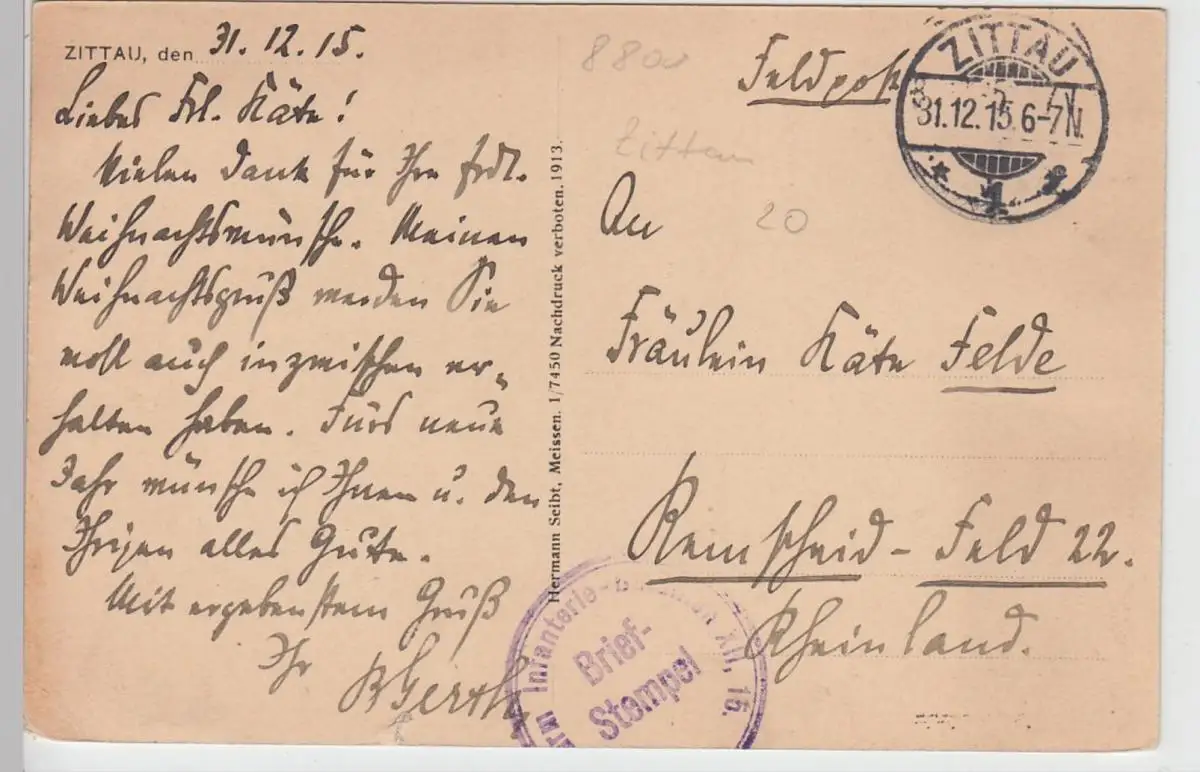 ZITTAU, den 31.12.15.
Liebes Frl. Käte!
Vielen Dank für Ihre frdl.
Weihnachtswünsche. Meinen
Weihnachtsgruß werden Sie
wohl auch inzwischen er-
halten haben. Fürs neue
Jahr wünsche ich Ihnen u. den
Ihrigen alles Gute.
Mit ergebenstem Gruß
Ihr
Hermann Seibt, Meissen. 1/7450 Nachdruck verboten. 1913.
Feldpost
ZITTAU
31.12.15.6-7N.
1
Zittau
20
An
Fräulein Käte Felde
Remscheid - Feld 22.
Rheinland.
Infanterie- XII, 16.
Brief-
Stempel